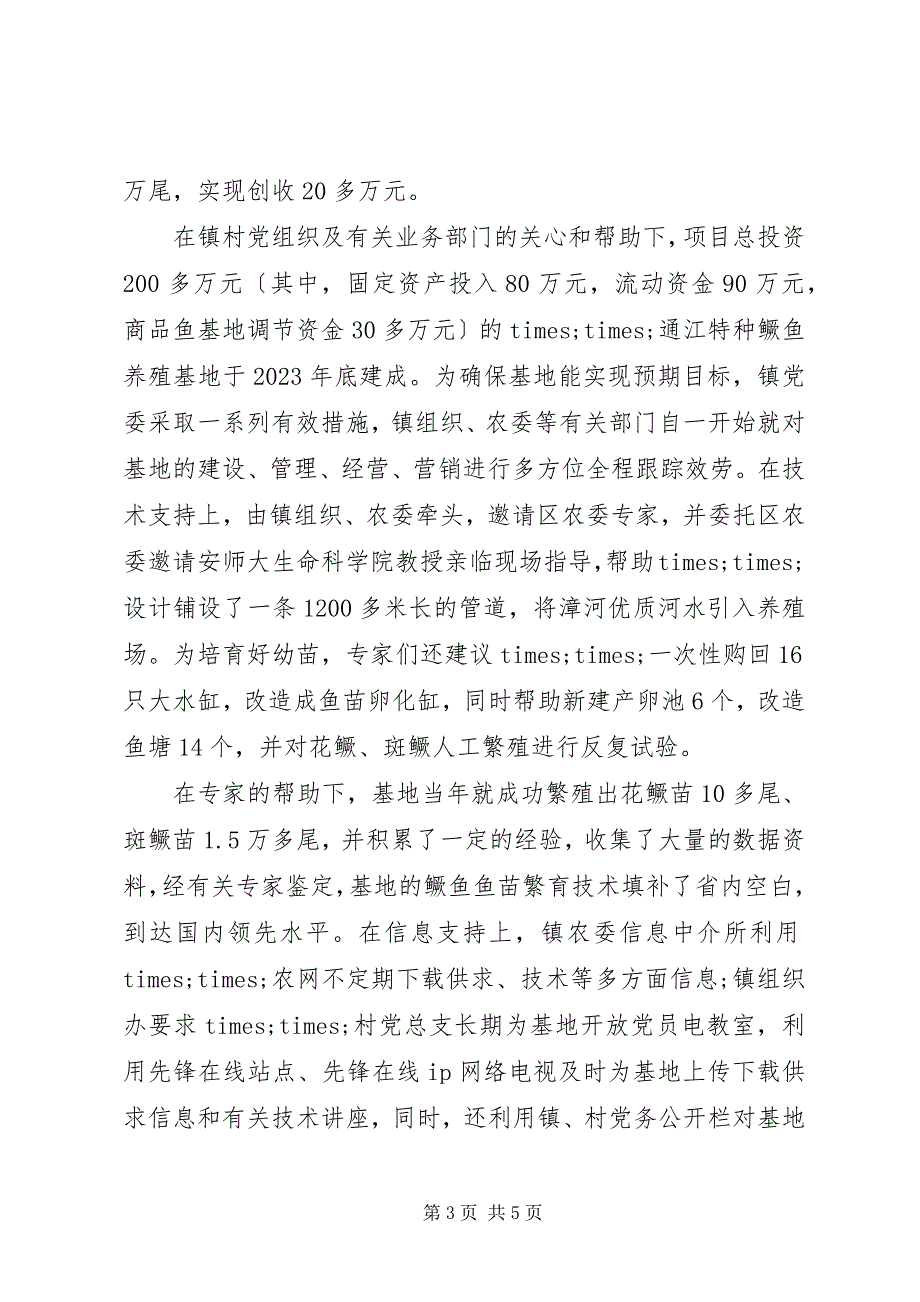 万尾，实现创收 20 多万元。
在镇村党组织及有关业务部门的关心和帮助下，项目总投资
200 多万元〔其中，固定资产投入 80 万元，流动资金 90 万元，
商品鱼基地调节资金 30 多万元〕的 times;times;通江特种鳜鱼
养殖基地于 2023 年底建成。为确保基地能实现预期目标，镇党
委采取一系列有效措施，镇组织、农委等有关部门自一开始就对
基地的建设、管理、经营、营销进行多方位全程跟踪效劳。在技
术支持上，由镇组织、农委牵头，邀请区农委专家，并委托区农
委邀请安师大生命科学院教授亲临现场指导，帮助 times;times;
设计铺设了一条 1200 多米长的管道，将漳河优质河水引入养殖
场。为培育好幼苗，专家们还建议 times;times;一次性购回 16
只大水缸，改造成鱼苗卵化缸，同时帮助新建产卵池 6 个，改造
鱼塘 14 个，并对花鳜、斑鳜人工繁殖进行反复试验。
在专家的帮助下，基地当年就成功繁殖出花鳜苗 10 多尾、
斑鳜苗 1.5 万多尾，并积累了一定的经验，收集了大量的数据资
料，经有关专家鉴定，基地的鳜鱼鱼苗繁育技术填补了省内空白，
到达国内领先水平。在信息支持上，镇农委信息中介所利用
times;times;农网不定期下载供求、技术等多方面信息;镇组织
办要求 times;times;村党总支长期为基地开放党员电教室，利
用先锋在线站点、先锋在线 ip 网络电视及时为基地上传下载供
求信息和有关技术讲座，同时，还利用镇、村党务公开栏对基地
第 3 页 共 5 页